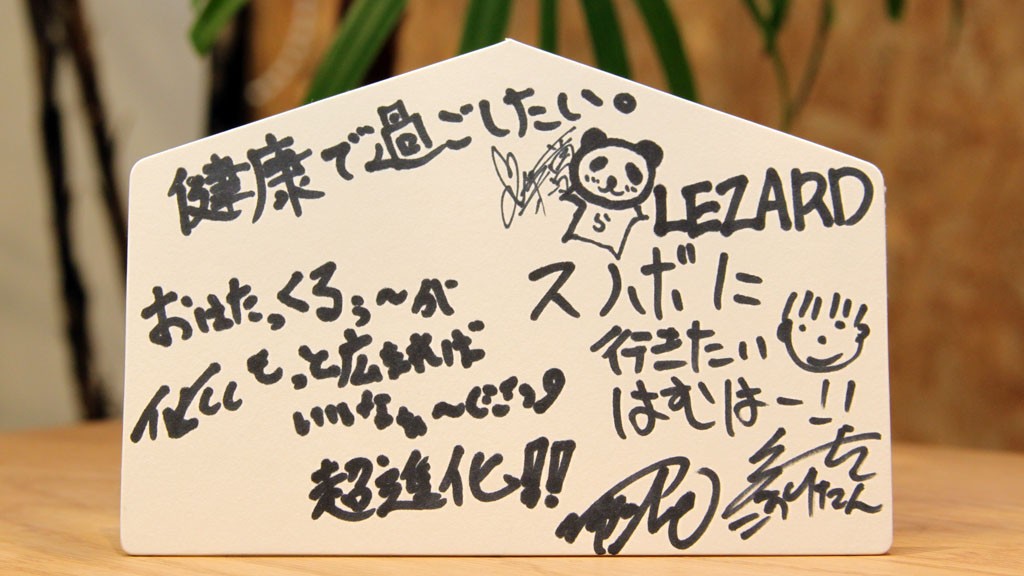 健康で過ごしたい。
S
LEZARD
スノボに
行きたい
はむはー!!
おはたっくるぅ〜が
もっと広まれば
いいなぁ〜
超進化!!